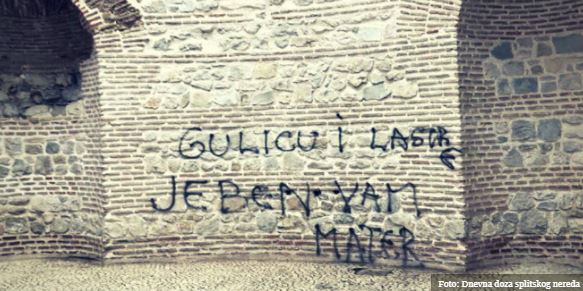 GULICU i
JEBEN VAM
MATER
Foto: Dnevna doza splitskog nereda